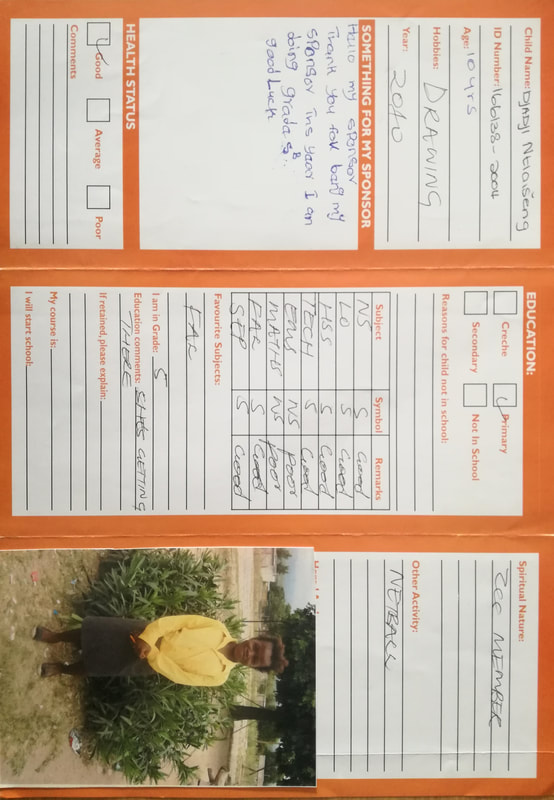 Child Name: Djadji Ntlaiseng
ID Number: 166138-2004
Age: 10 yrs
Hobbies: DRAWING
Year: 2010
SOMETHING FOR MY SPONSOR
Hello my sponsor
Thank you for bang my
sponsor this year I am
doing grade 5
good Luck
HEALTH STATUS
Good Average Poor
Comments
EDUCATION:
Creche Primary
Secondary Not In School
Reasons for child not in school:
Subject Symbol Remarks
NS S Good
LO S Good
HSS S Good
TECH S Good
EMS NS POOR
MATHS NS POOR
EAR S Good
SEP S Good
Favourite Subjects:
EAR
I am in Grade: 5
Education comments: SHE'S GETTING
THERE
If retained, please explain:
My course is:
I will start school:
Spiritual Nature:
ZCC MEMBER
Other Activity:
NETBALL